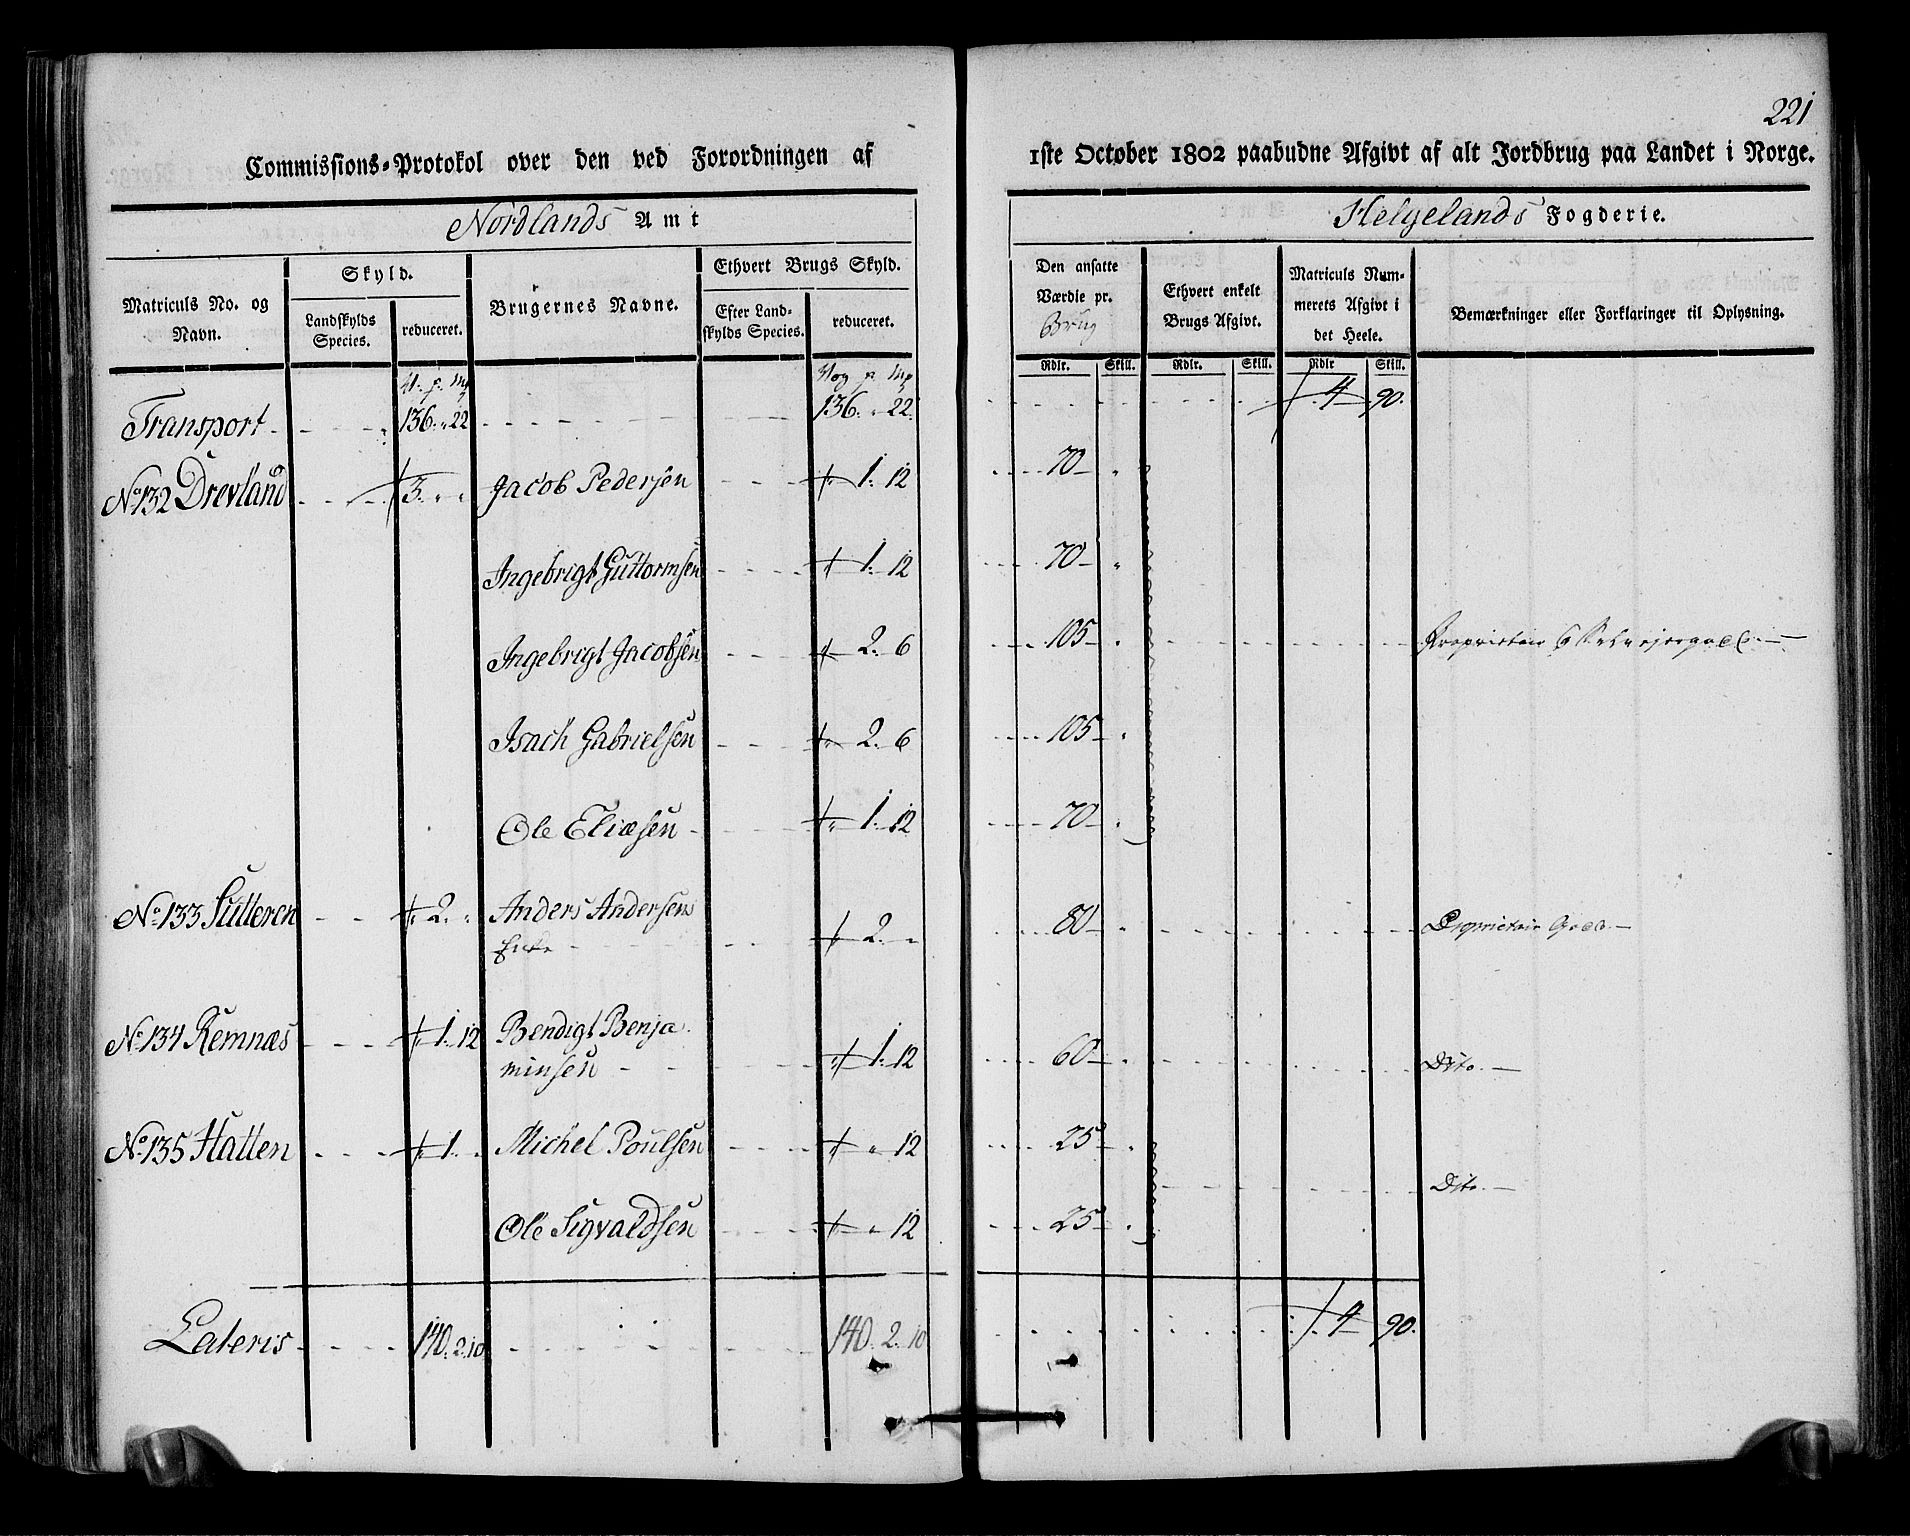 221
Commissions-Protokol over den ved Forordningen af 1ste October 1802 paabudne Afgivt af alt Jordbrug paa Landet i Norge.
Nordlands Amt
Helgelands Fogderie.
Matriculs No. og Navn.
Skyld.
Landskylds Species.
reduceret.
Brugernes Navne.
Ethvert Brugs Skyld.
Efter Landskylds Species.
reduceret.
Den ansatte Værdie pr. Brug
Ethvert enkelt Brugs Afgivt.
Matriculs Nummerets Afgivt i det Heele.
Bemærkninger eller Forklaringer til Oplysning.
Rdlr. Skill. Rdlr. Skill. Rdlr Skill.
V. p. mk Vog p. mk
Transport 136. " 22 136. " 22. 4 90.
No 132 Drevland 3. " " Jacob Pedersen 1. 12 70 "
Ingebrigt Guttormsen 1. 12 70 "
Ingebrigt Jacobsen 2. 6 105 " Proprietair
Isach Gabrielsen 2. 6 105 "
Ole Eliæsen 1. 12 70 "
No 133 Sutteren 2. " Anders Andersens
Enke 2. " 80 " Proprietair Goed.
No 134 Remnæs 1. 12 Bendigt Benja
minsen 1. 12 60 " Dito.
No 135 Hatten 1. " Michel Poulsen " 12 25 "
Dito.
Ole Sigvaldsen " 12 25 "
Lateris 140. 2. 10 140. 2. 10 4 90.